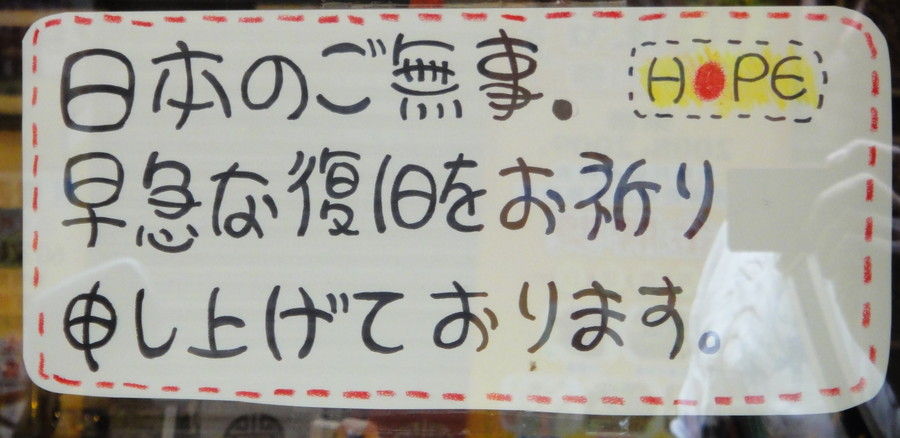 日本のご無事.
HOPE
早急な復旧をお祈り
申し上げております。